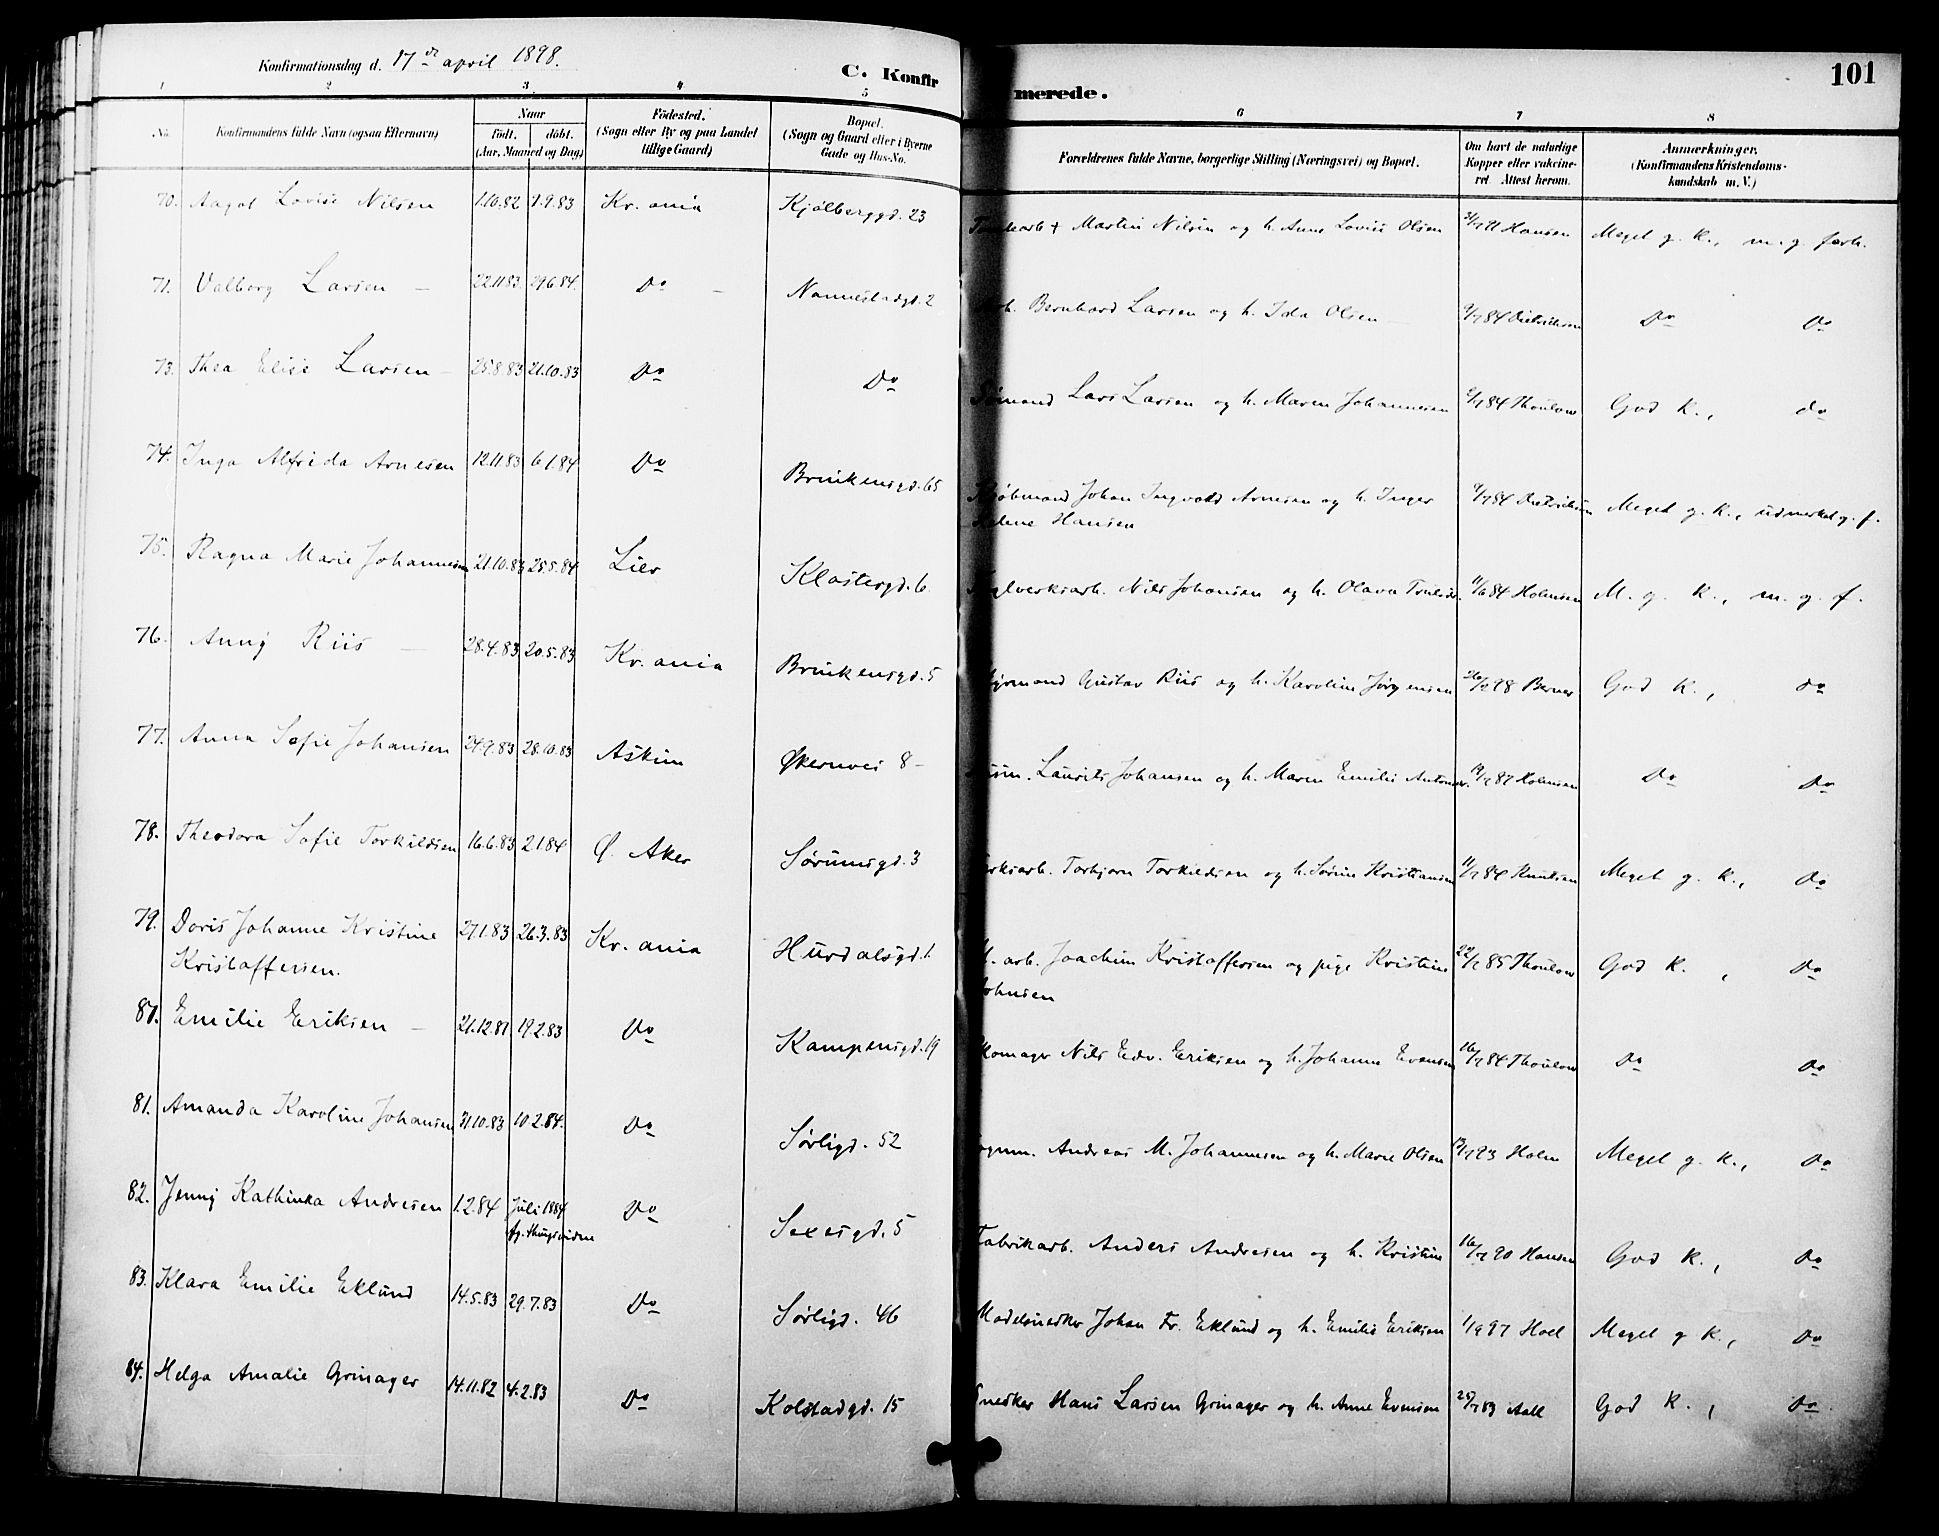 Konfirmationsdag d. 17de april 1898.
C. Konfirmerede.
101
1 2 3 4 5 6 7 8
No. Konfirmandens fulde Navn (ogsaa Efternavn)
Naar
født. døbt.
(Aar, Maaned og Dag)
Fødested.
(Sogn eller By og paa Landet
tillige Gaard)
Bopæl.
(Sogn og Gaard eller i Byerne
Gade og Hus-No.
Forældrenes fulde Navne, borgerlige Stilling (Næringsvei) og Bopæl.
Om havt de naturlige
Kopper eller vakcine-
ret. Attest herom.
Anmærkninger.
(Konfirmandens Kristendoms-
kundskab m. V.)
70. Aagot Lovise Nilsen 1.10.82 7.9.83 Kr.ania Kjølberggd. 23 Martin Nilsen og h. Anne Lovise Olsen Hansen Meget g. K., m. g. forh.
71. Valborg Larsen 22.11.83 29.6.84. Do Nannestadgd. 2 Bernhard Larsen og h. Ida Olsen 84 Dietrichson Do Do
73. Thea Elise Larsen 25.8.83 21.10.83 Do Do Sømand Lars Larsen og h. Maren Johannesen 84 Thoulow God K., do
74. Inga Alfrida Arnesen 12.11.83 6.1.84 Do Brinkensgd. 65 Johan Ingvald Arnesen og h. Inger
Helene Hansen 84 Dietrichson Meget g. K., udmerket g. f.
75. Ragna Marie Johannesen 21.10.83 25.5.84 Lier Klostergd. 6. Nils Johansen og h. Olava 11/6 84 Holmsen M. g. K., m. g. f.
76. Anny Riis 28.4.83 20.5.83 Kr.ania Brinkensgd. 5 Styrmand Gustav Riis og h. Karoline Jørgensen 26/2 98 Berner God K., do
77. Anna Sofie Johansen 24.9.83 28.10.83 Askim Økernvei 8 Laurits Johansen og h. Maren Emilie 87 Holmsen Do Do
78. Theodora Sofie Torkildsen 16.6.83 2.1.84 Ø. Aker Sørumsgd. 3 Torbjørn Torkildsen og h. Sørine Kristiansen 84 Knutsen Meget g. K., Do
79. Doris Johanne Kristine
Kristoffersen. 27.1.83 26.3.83 Kr.ania Hurdalsgd. 1. arb. Joachim Kristoffersen og pige Kristine
Johnsen 85 Thoulow God K., Do
Emilie Eriksen 19.2.83 Do Kampensgd. 19 Skomager Nils Edv. Eriksen og h. Johanne Evensen 84 Thoulow Do Do
81. Amanda Karoline Johansen 31.10.83 10.2.84. Do Sørligd. 52 Andreas M. Johannesen og h. Marie Olsen 93 Holm Meget g. K., Do
82. Jenny Kathinka Andresen 1.2.84 Juli 1884 Do Sexesgd. 5 Fabrikarb. Anders Andresen og h. Kristine 90 Hansen God K., Do
83. Klara Emilie Eklund 14.5.83 29.7.83 Do Sørligd. 46 Modelsnedker Johan Fr. Eklund og h. Emilie Eriksen 1/9 97 Hoel Meget g K., Do
84. Helga Amalie Grinager 14.11.82 4.2.83 Do Kolstadgd. 15 Snedker Hans Larsen Grinager og h. Anne Evensen 83 Aall God K., Do